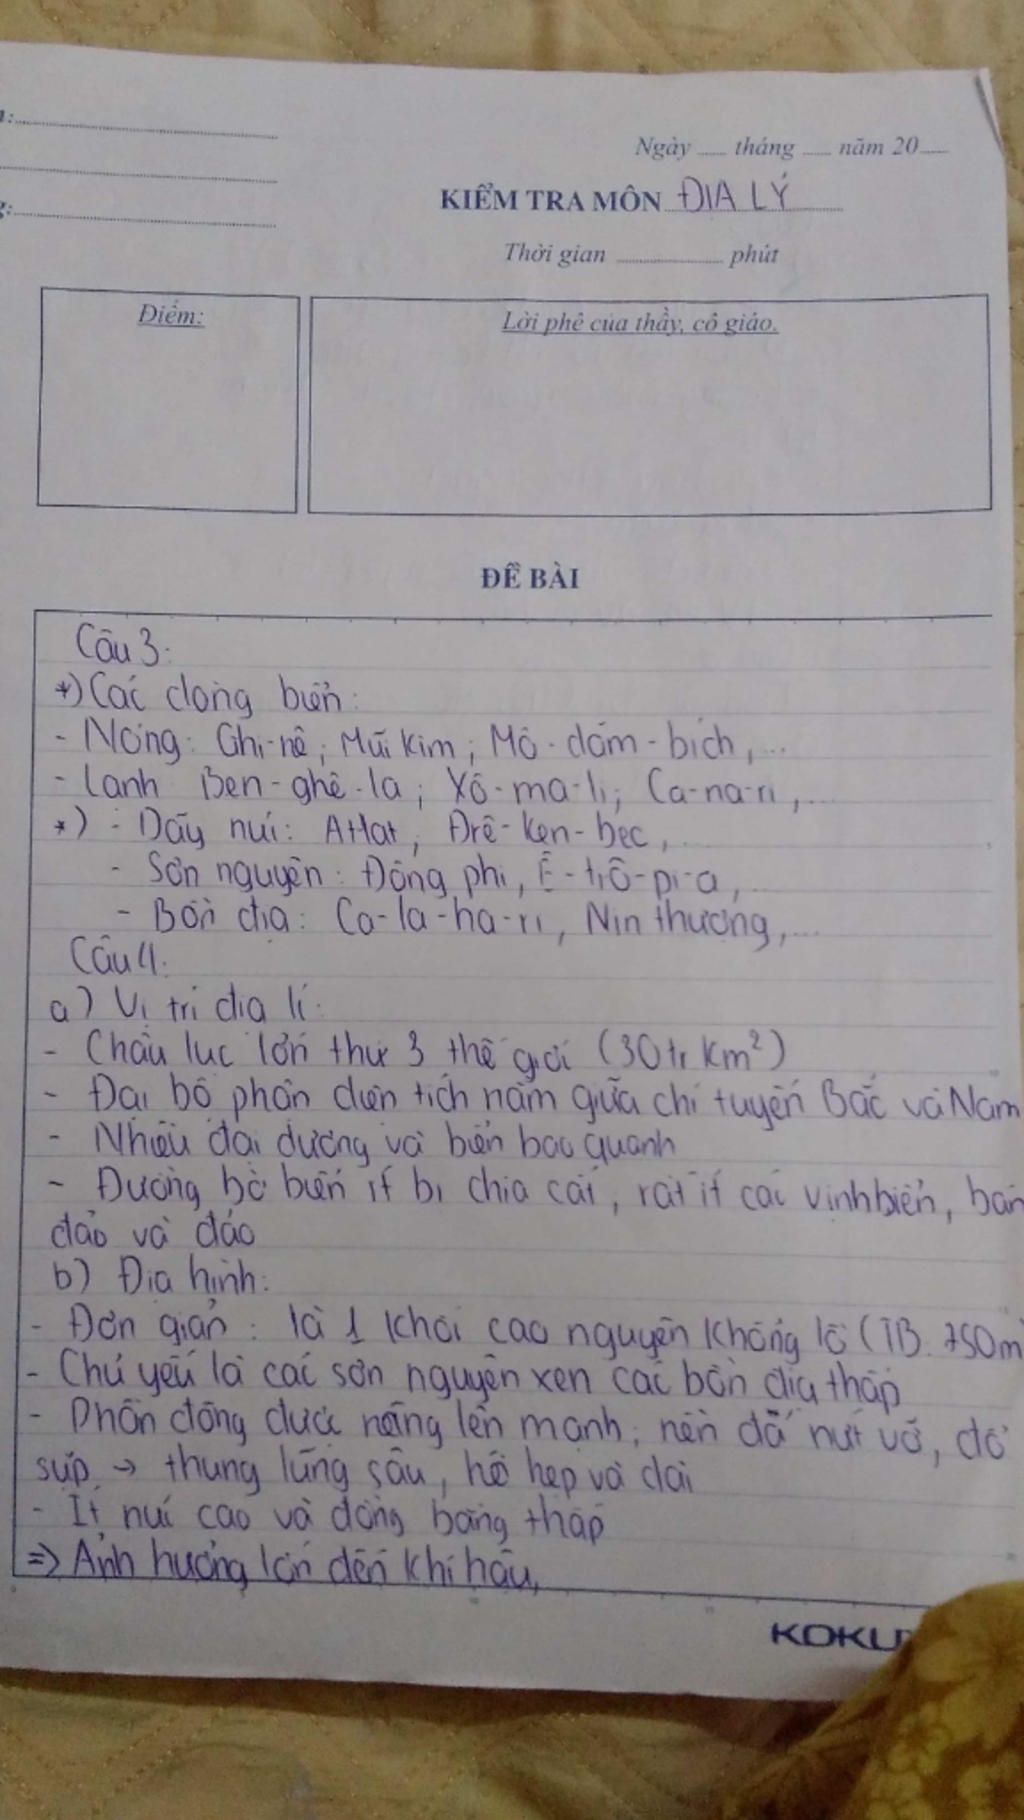 Ngày ..... tháng ..... năm 20.....
KIỂM TRA MÔN ĐỊA LÝ
Thời gian .................... phút
Điểm:
Lời phê của thầy, cô giáo.
ĐỀ BÀI
Câu 3:
*) Các dòng biển:
- Nóng: Ghi-nê; Mũi Kim; Mô-dăm-bích, ...
- Lạnh Ben-ghê-la; Xô-ma-li; Ca-na-ri, ...
*) - Dãy núi: Atlat; Đrê-ken-bec, ...
- Sơn nguyên: Đông phi, Ê-ti-ô-pi-a, ...
- Bồn địa: Ca-la-ha-ri, Nin thượng, ...
Câu 4:
a) Vị trí địa lí:
- Châu lục lớn thứ 3 thế giới (30tr km²)
- Đại bộ phận diện tích nằm giữa chí tuyến Bắc và Nam
- Nhiều đại dương và biển bao quanh
- Đường bờ biển ít bị chia cắt, rất ít các vịnh biển, bán
đảo và đảo
b) Địa hình:
- Đơn giản: là 1 khối cao nguyên khổng lồ (TB: 750m
- Chủ yếu là các sơn nguyên xen các bồn địa thấp
- Phần đông được nâng lên mạnh; nền đá nứt vỡ, đổ
sụp → thung lũng sâu, hồ hẹp và dài
- Ít núi cao và đồng bằng thấp
=> Ảnh hưởng lớn đến khí hậu.